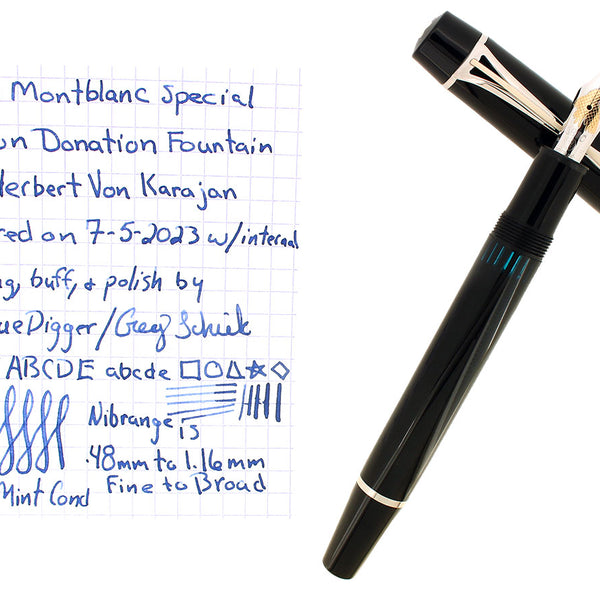 Montblanc Special
on Donation Fountain
Herbert Von Karajan
red on 7-5-2023 w/internal
g, buff, & polish by
ueDigger/Greg Schiek
ABCDE abcde
Nibrange is
.48mm to 1.16mm
Fine to Broad
Mint Cond